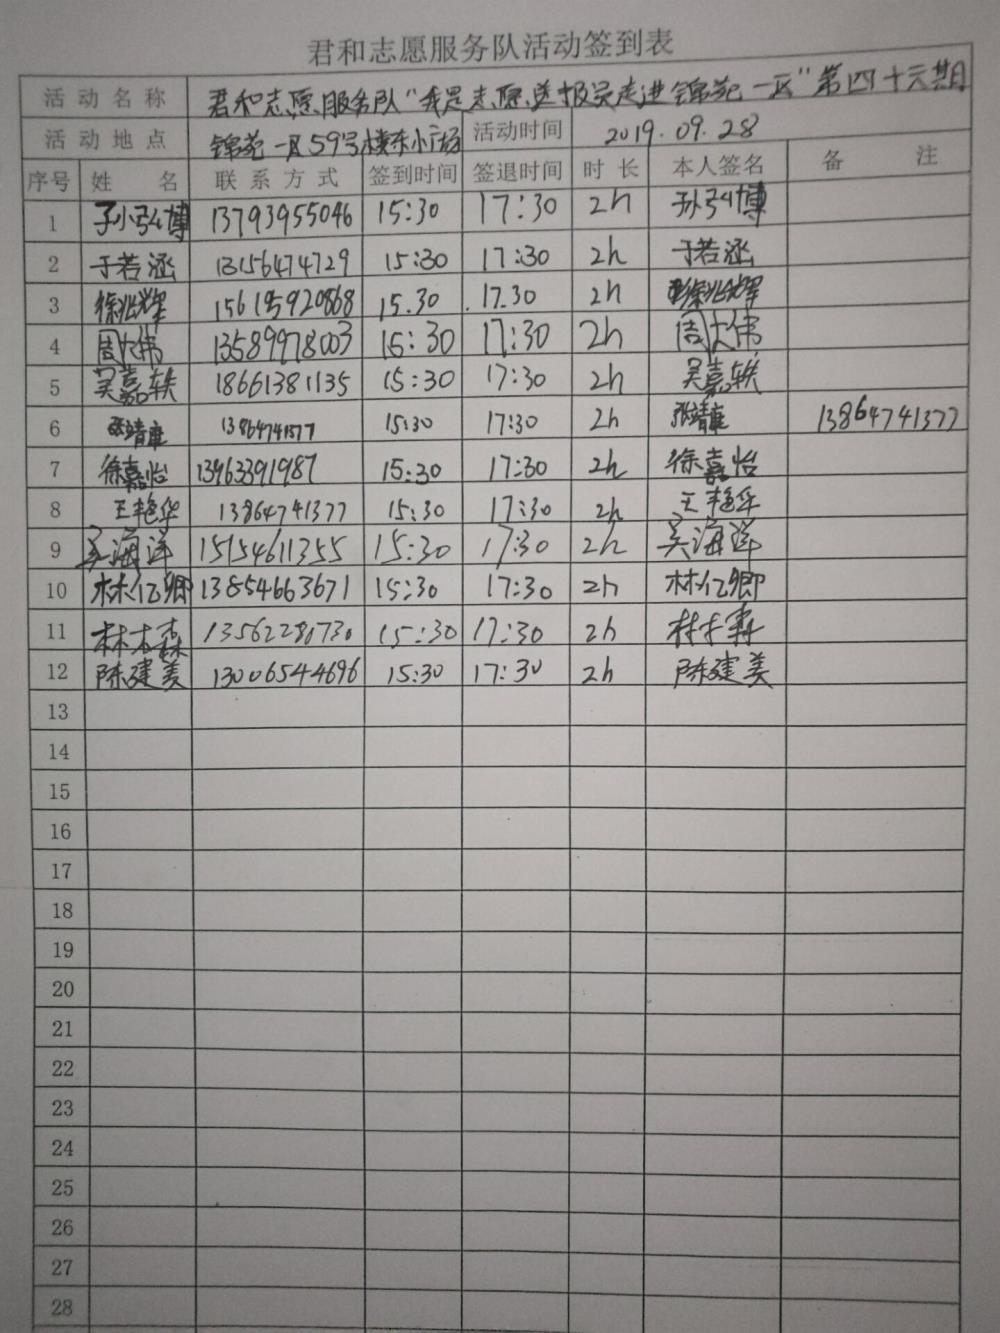 君和志愿服务队活动签到表
活动名称 君和志愿服务队“我是志愿送报员走进锦苑一区”第四十六期
活动地点 锦苑一区59号楼东小广场 活动时间 2019.09.28
序号 姓名 联系方式 签到时间 签退时间 时长 本人签名 备注
1 孙弘博 13793955046 15:30 17:30 2h 孙弘博
2 于若涵 13156474729 15:30 17:30 2h 于若涵
3 徐兆辉 15:30 17.30 2h 徐兆辉
4 周大伟 13589978003 15:30 17:30 2h 周大伟
5 吴嘉轶 18661381135 15:30 17:30 2h 吴嘉轶
6 张靖 15:30 17:30 2h 张靖 13864741377
7 徐嘉怡 13963391987 15:30 17:30 2h 徐嘉怡
8 王艳华 13864741377 15:30 17:30 2h 王艳华
9 吴海洋 15154611355 15:30 17:30 2h 吴海洋
10 林亿卿 13854663671 15:30 17:30 2h 林亿卿
11 林木森 13562280730 15:30 17:30 2h 林木森
12 陈建美 13006544696 15:30 17:30 2h 陈建美
13
14
15
16
17
18
19
20
21
22
23
24
25
26
27
28